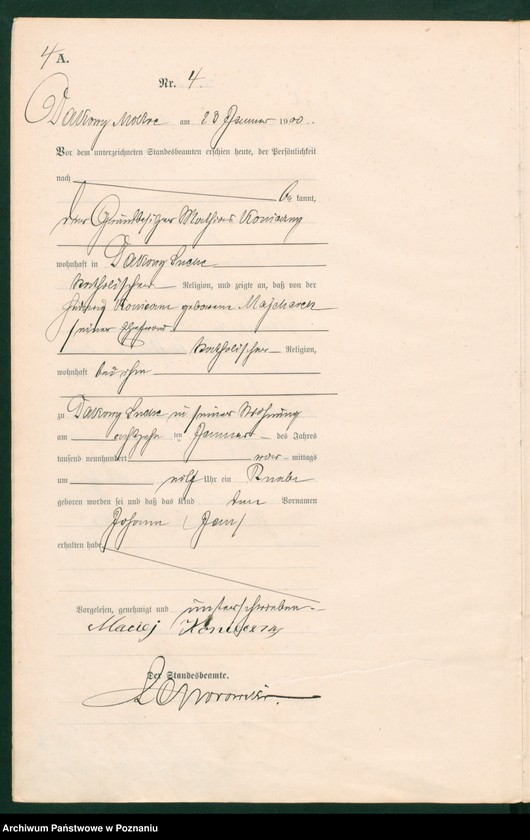 4 A.
Nr. 4.
Dakowy Mokre am 23 Januar 1900..
Vor dem unterzeichneten Standesbeamten erschien heute, der Persönlichkeit
nach be kannt,
der Grundbesitzer Mathias
wohnhaft in Dakowy Suche
katholischer Religion, und zeigte an, daß von der
geborene Majcherek
seiner Ehefrau
katholischer Religion,
wohnhaft bei ihm
zu Dakowy Suche in seiner Wohnung
am achtzehn ten Januar des Jahres
tausend neunhundert vor mittags
um elf Uhr ein Knabe
geboren worden sei und daß das Kind den Vornamen
Johann (Jan)
erhalten habe
Vorgelesen, genehmigt und unterschrieben
Maciej
Der Standesbeamte.
Archiwum Państwowe w Poznaniu